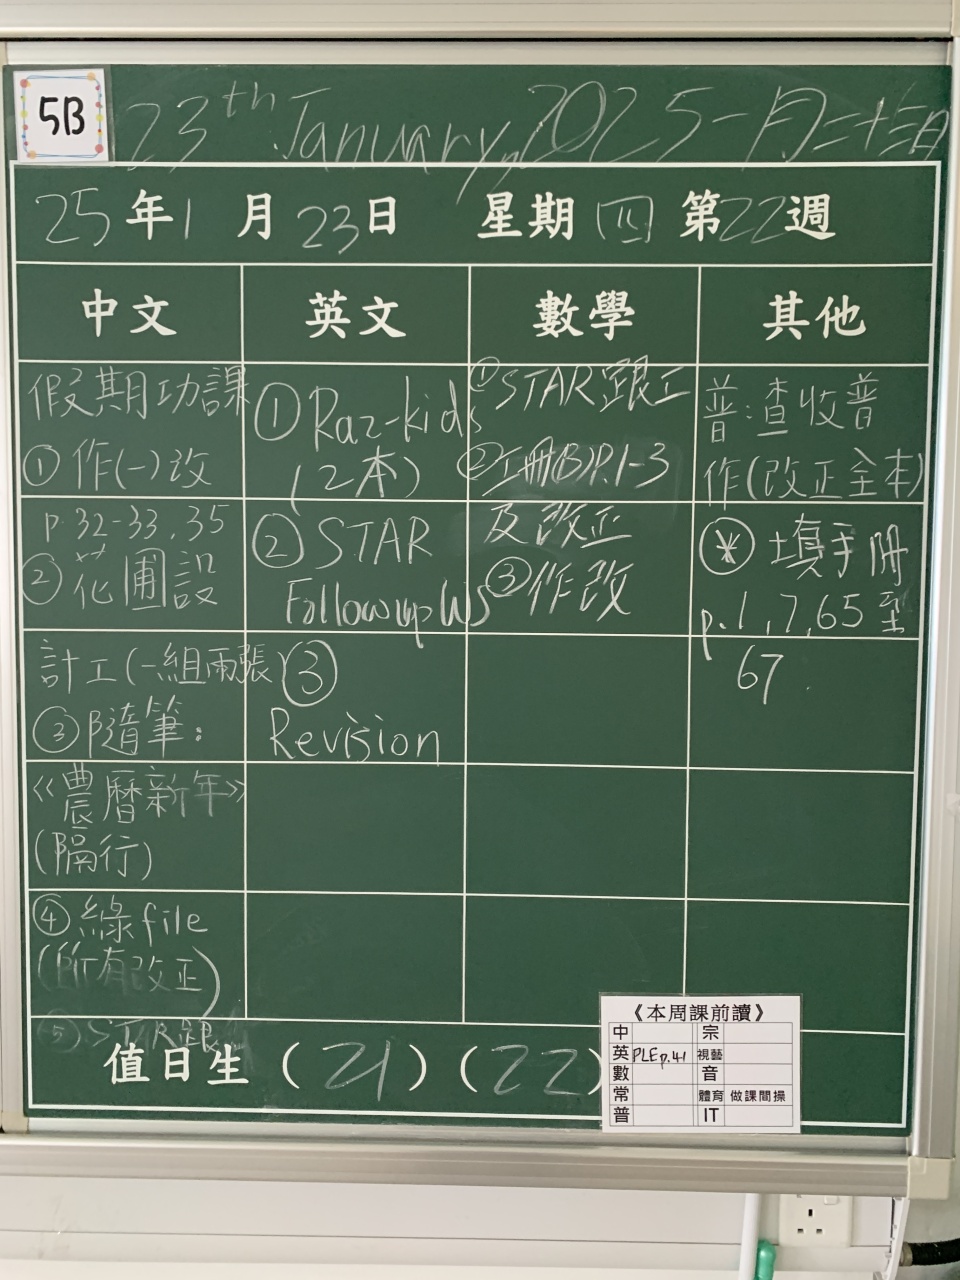 5B
23th January, 2025 一月二十三日
25年1月23日 星期四 第22週
中文
英文
數學
其他
假期功課
①作(一)改
p.32-33,35
②花圃設
計工(一組兩張)
③隨筆:
《農曆新年》
(隔行)
④綠file
(所有改正)
⑤STAR跟
①Raz-kids
(2本)
②STAR
Followup WS
③
Revision
①STAR跟工
②工冊(B)P.1-3
及改正
③作改
普:查收普
作(改正全本)
填手冊
p.1,7,65至
67
值日生(21)(22)
《本周課前讀》
中 宗
英 PLE p.41 視藝
數 音
常 體育 做課間操
普 IT